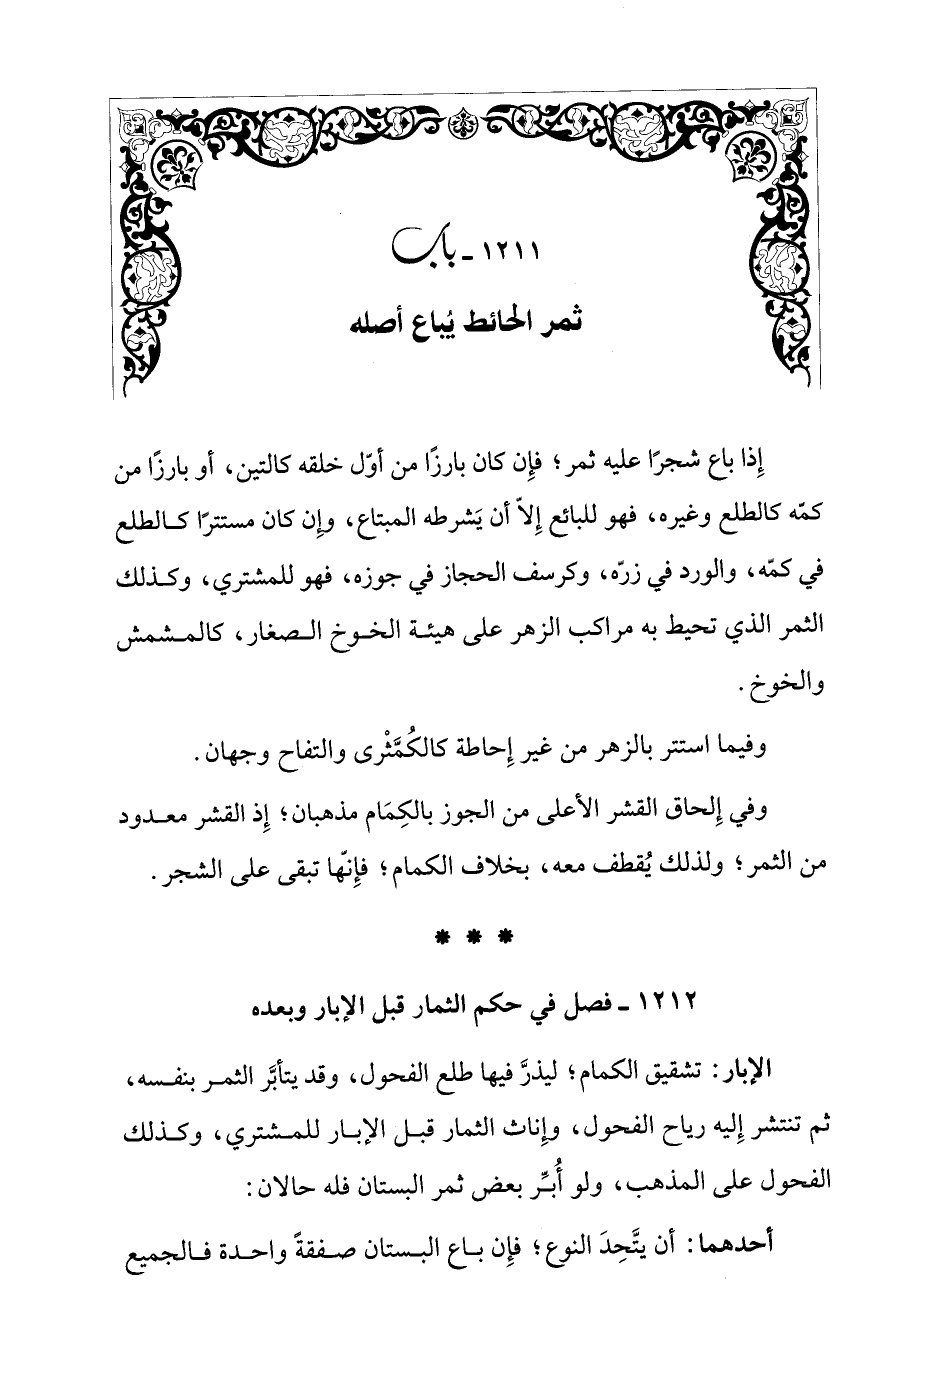 ١٢١١ ـ باب
ثمر الحائط يُباع أصله
إذا باع شجرًا عليه ثمر؛ فإن كان بارزًا من أوّل خلقه كالتين، أو بارزًا من
كمّه كالطلع وغيره، فهو للبائع إلاّ أن يَشرطه المبتاع، وإن كان مستترًا كالطلع
في كمّه، والورد في زرّه، وكرسف الحجاز في جوزه، فهو للمشتري، وكذلك
الثمر الذي تحيط به مراكب الزهر على هيئة الخوخ الصغار، كالمشمش
والخوخ.
وفيما استتر بالزهر من غير إحاطة كالكُمَّثْرى والتفاح وجهان.
وفي إلحاق القشر الأعلى من الجوز بالكِمَام مذهبان؛ إذ القشر معدود
من الثمر؛ ولذلك يُقطف معه، بخلاف الكمام؛ فإنّها تبقى على الشجر.
* * *
١٢١٢ ـ فصل في حكم الثمار قبل الإبار وبعده
الإبار: تشقيق الكمام؛ ليذرَّ فيها طلع الفحول، وقد يتأبَّر الثمر بنفسه،
ثم تنتشر إليه رياح الفحول، وإناث الثمار قبل الإبار للمشتري، وكذلك
الفحول على المذهب، ولو أُبِّر بعض ثمر البستان فله حالان:
أحدهما: أن يتَّحِدَ النوع؛ فإن باع البستان صفقةً واحدة فالجميع